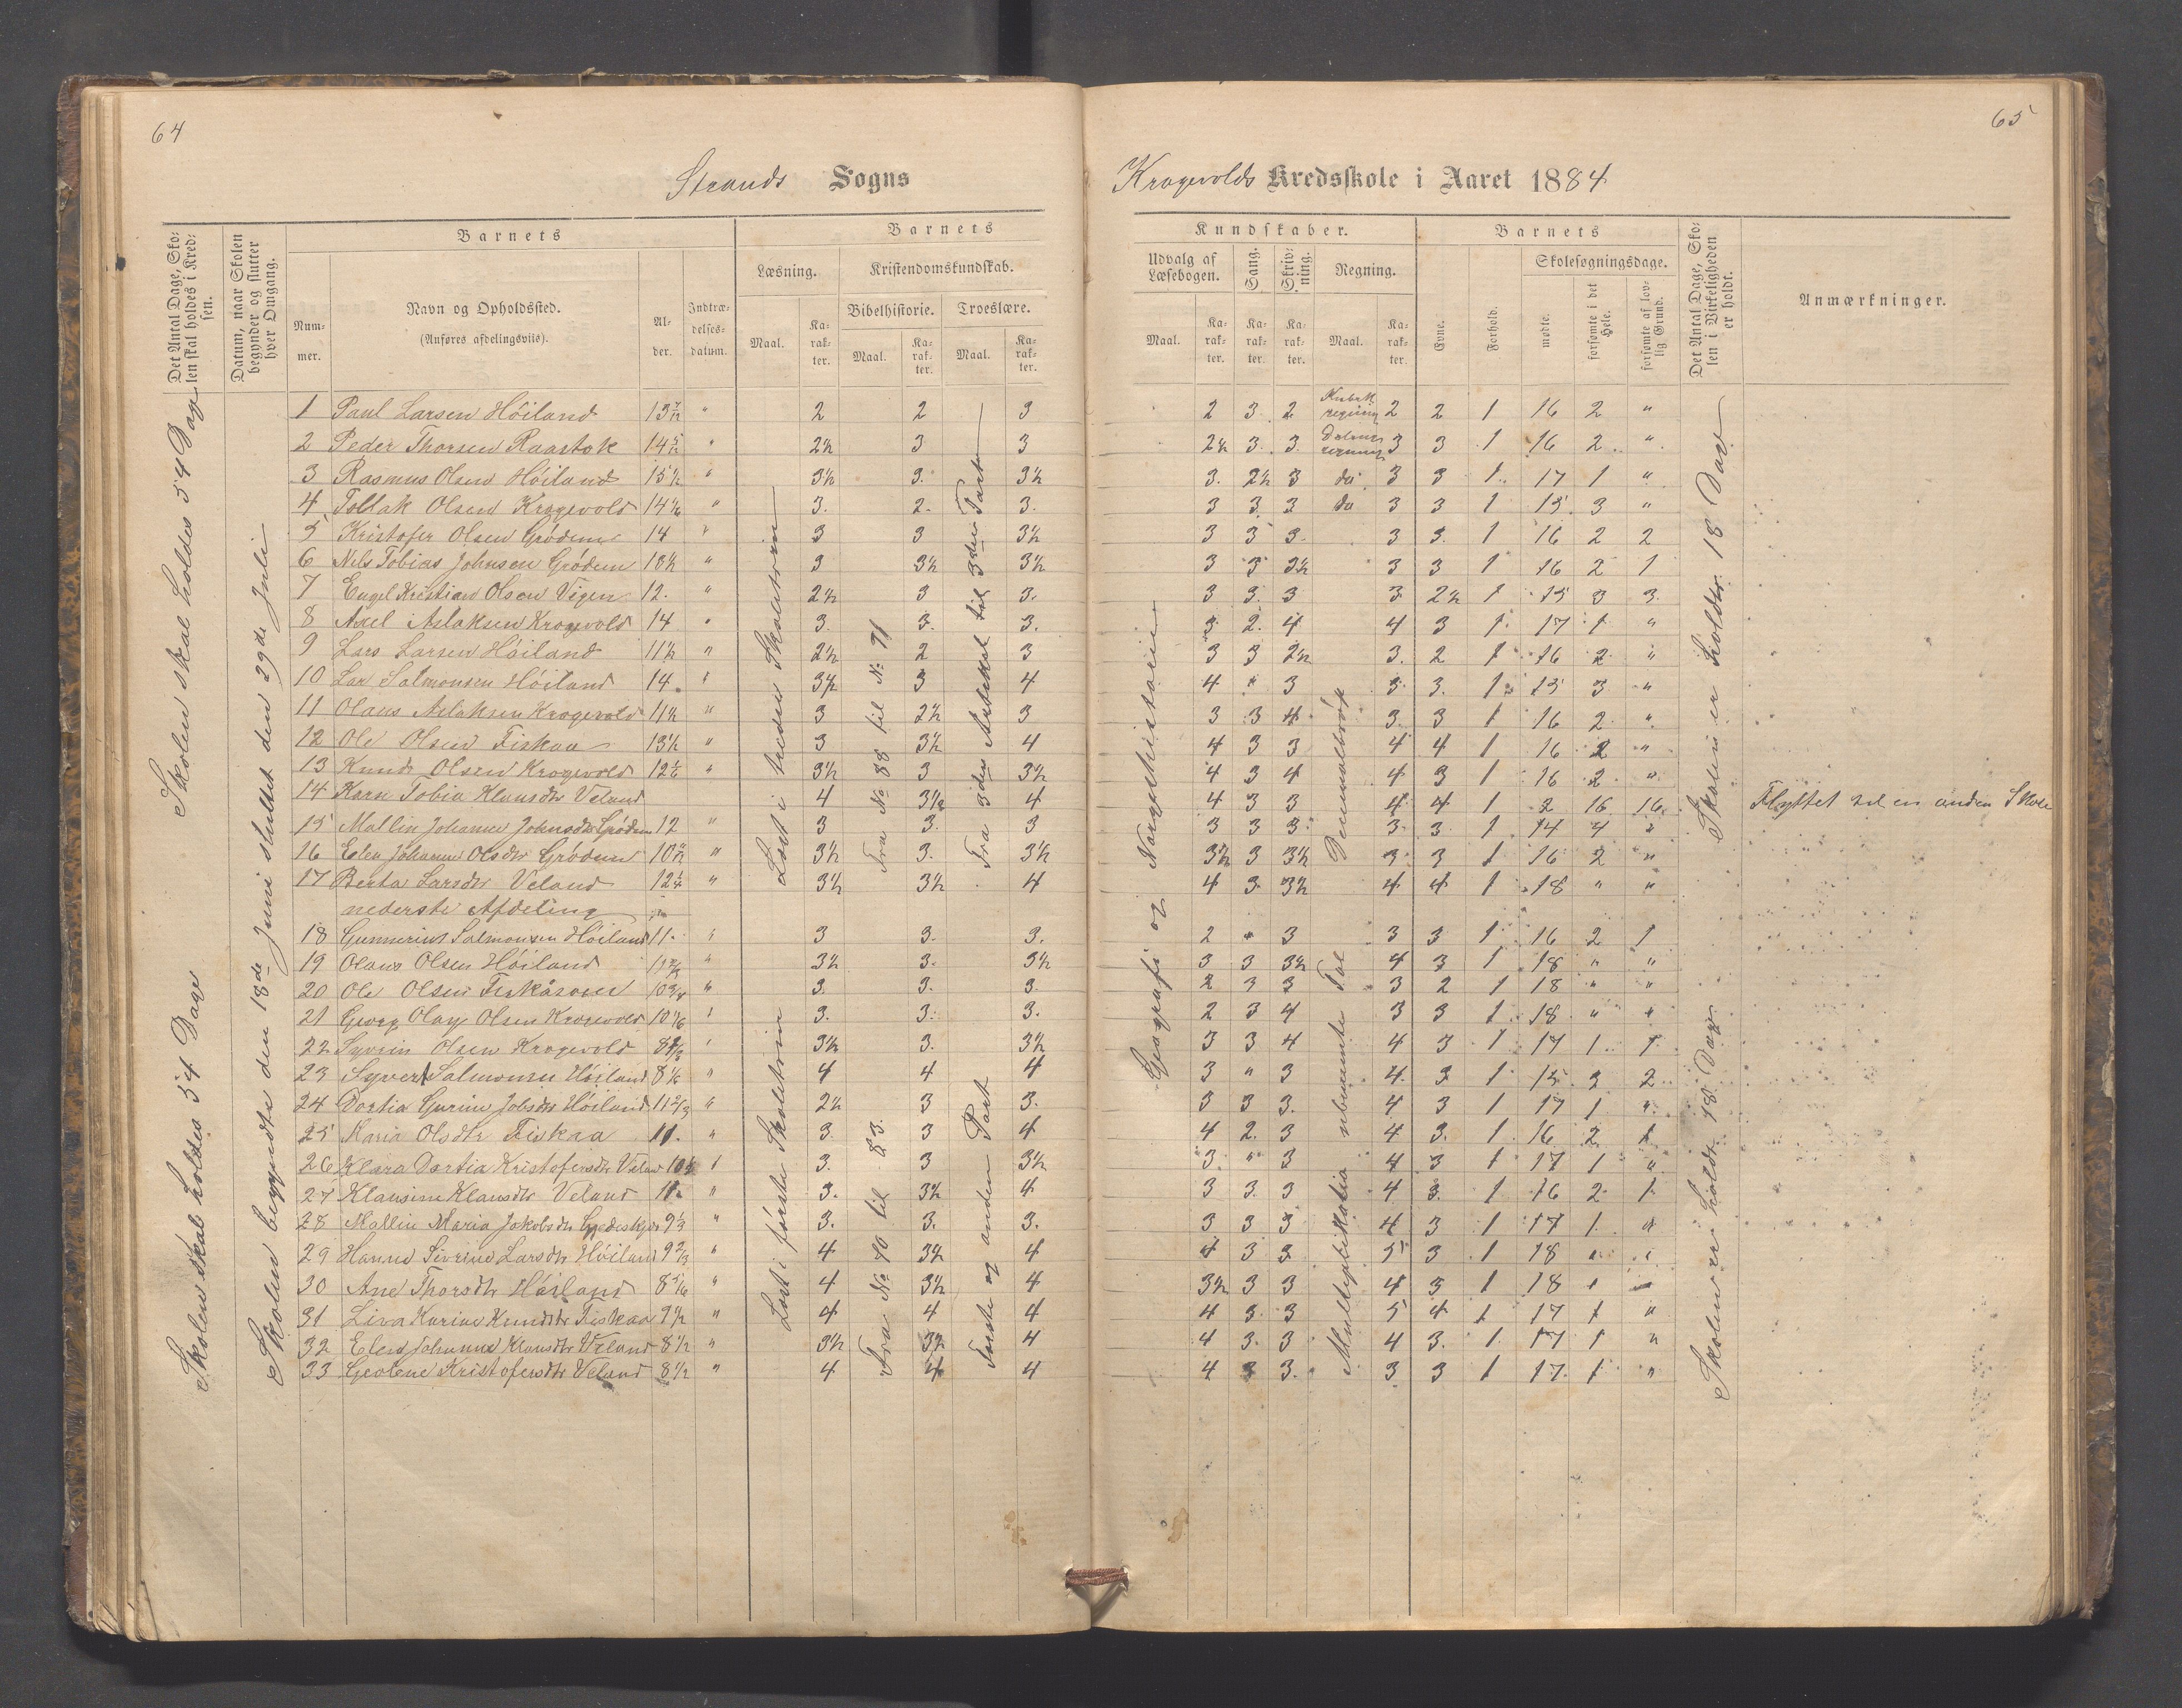 64
65
Strands Sogns
Krogevolds Kredsskole i Aaret 1884
Det Antal Dage, Skolen skal holdes i Kredsen.
Datum, naar Skolen begynder og slutter hver Omgang.
Barnets
Nummer.
Navn og Opholdssted.
(Anføres afdelingsviis).
Alder.
Indtrædelsesdatum.
Barnets
Læsning.
Kristendomskundskab.
Bibelhistorie.
Troeslære.
Maal.
Karakter.
Maal.
Karakter.
Maal.
Karakter.
Kundskaber.
Udvalg af Læsebogen.
Sang.
Skrivning.
Regning.
Maal.
Karakter.
Karakter.
Karakter.
Maal.
Karakter.
Barnets
Evne.
Forhold.
Skolesøgningsdage.
mødte.
forsømte i det Hele.
forsømte af lovlig Grund.
Det Antal Dage, Skolen i Virkeligheden er holdt.
Anmærkninger.
Skolen skal holdes 54 Dage
Skolen skal holdes 54 Dage
Skolen begyndte den 18de Juni sluttet den 29de Juli
Læst i tredie Skoletrin
Læst i første Skoletrin
Fra No 88 til No 91
Fra No 40 til 83
Fra 3die Artikkel til 3die Part
Første og anden Part
Geografi og Norgeshistorie
Decimalbrøk
Multiplikation ubenævnte Tal
Skolen er holdt 18 Dage
Skolen er holdt 18 Dage
1 Paul Larsen Høiland 13 7/12 " 2 2 3 2 3 2 Kubikregning 2 2 1 16 2 "
2 Peder Thorsen Raastok 14 5/12 " 2½ 3 3 2½ 3. 3. 3 3 1 16 2 "
3 Rasmus Olsen Høiland 15½ " 3½ 3. 3½ 3. 2½ 3 do 3 3 1 17 1 "
4 Tollak Olsen Krogevold 14 1/6 " 3. 2. 3. 3 3 3 do 3 3 1 15 3 "
5 Kristofer Olsen Grödem 14 " 3 3 3½ 3 3 3 3 3 1 16 2 2
6 Nils Tobias Johnsen Grödem 13½ " 3 3½ 3½ 3 3 3½ 3 3 1 16 2 1
7 Engel Kristian Olsen Vigen 12. " 2½ 3 3. 3 3. 3 3 2½ 1 15 3 3
8 Axel Aslaksen Krogevold 14 " 3. 3. 3. 3 2. 4 4 3 1 17 1 "
9 Lars Larsen Høiland 11½ " 2½ 2 3 3 3 2½ 3. 2 1 16 2 "
10 Lar Salmonsen Høiland 14. " 3½ 3 4 4 " 3 3 3. 1 15 3 "
11 Olaus Aslaksen Krogevold 11½ " 3 2½ 3 3 3 4 3 3 1 16 2 "
12 Ole Olsen Fiskaa 13½ " 3 3½ 4 4 3 3 4 4 1 16 2 "
13 Knud Olsen Krogevold 12 1/6 " 3½ 3 3½ 4 3 4 4 3 1 16 2 "
14 Karn Tobia Klausdtr Veland 4 3½ 4 4 3 3 4 4 1 2 16 16 Flyttet til en anden Skole
15 Mallin Johanne Johnsdtr Grödem 12 " 3 3. 3 3 3 3 3 3 1 14 4 2
16 Elen Johanne Olsdtr Grödem 10 11/12 " 3½ 3. 3½ 3½ 3 3½ 3 3 1 16 2 "
17 Berta Larsdtr Veland 12¼ " 3½ 3½ 4 4 3 3½ 4 4 1 18 " "
nederste Afdeling
18 Gunnerius Salmonsen Høiland 11. " 3 3. 3. 2 " 3 3 3 1 16 2 1
19 Olaus Olsen Høiland " 3½ 3. 3½ 3 3 3½ 4 3 1 18 " "
20 Ole Olsen 10¾ " 3. 3. 3. 2 3 3 3 2 1 18 " "
21 Georg Olay Olsen Krogevold 10 1/6 " 3. 3. 3. 2 3 4 3 3 1 18 " "
22 Olsen Krogevold 8 " 3½ 3. 3½ 3 3 4 4 3 1 17 1 1
23 Syvert Salmonsen Høiland 8 1/6 " 4 4 4 3 " 3 4 3 1 15 3 2
24 Dortia Gurine Jobsdtr Høiland 11 2/3 " 2½ 3 3. 3 3 3. 4 3 1 17 1 "
25 Maria Olsdtr Fiskaa 11. " 3. 3 4 4 2. 3 4 3. 1 16 2 1
26 Klara Dortia Kristofersdtr Veland 10½ " 3. 3 3½ 3 " 3 4 3 1 17 1 "
27 Klausine Klausdtr Veland 11. " 3. 3½ 4 3 3. 3 4 3. 1 16 2 1
28 Mallin Maria Jakobsdtr 9 1/3 " 3. 3. 3. 3 3 3 4 3 1 17 1 "
29 Hanne Sivrine Larsdtr Høiland 9 2/3 " 4 3½ 4 4 3 3 5 3 1 18 " "
30 Ane Thorsdtr Høiland 8 " 4 3½ 4 3½ 3 3 4 3 1 18 " "
31 Liva Karine Knudsdtr Fiskaa 9½ " 4 4 4 4 3 3 5 4 1 17 1 "
32 Elen Johanna Klausdtr Veland 8½ " 3½ 3½ 4 4 3. 3 4 3. 1 17 1 "
33 Geolene Kristofersdtr Veland 8½ " 4 4 4 4 3 3. 3 3 1 17. 1 "